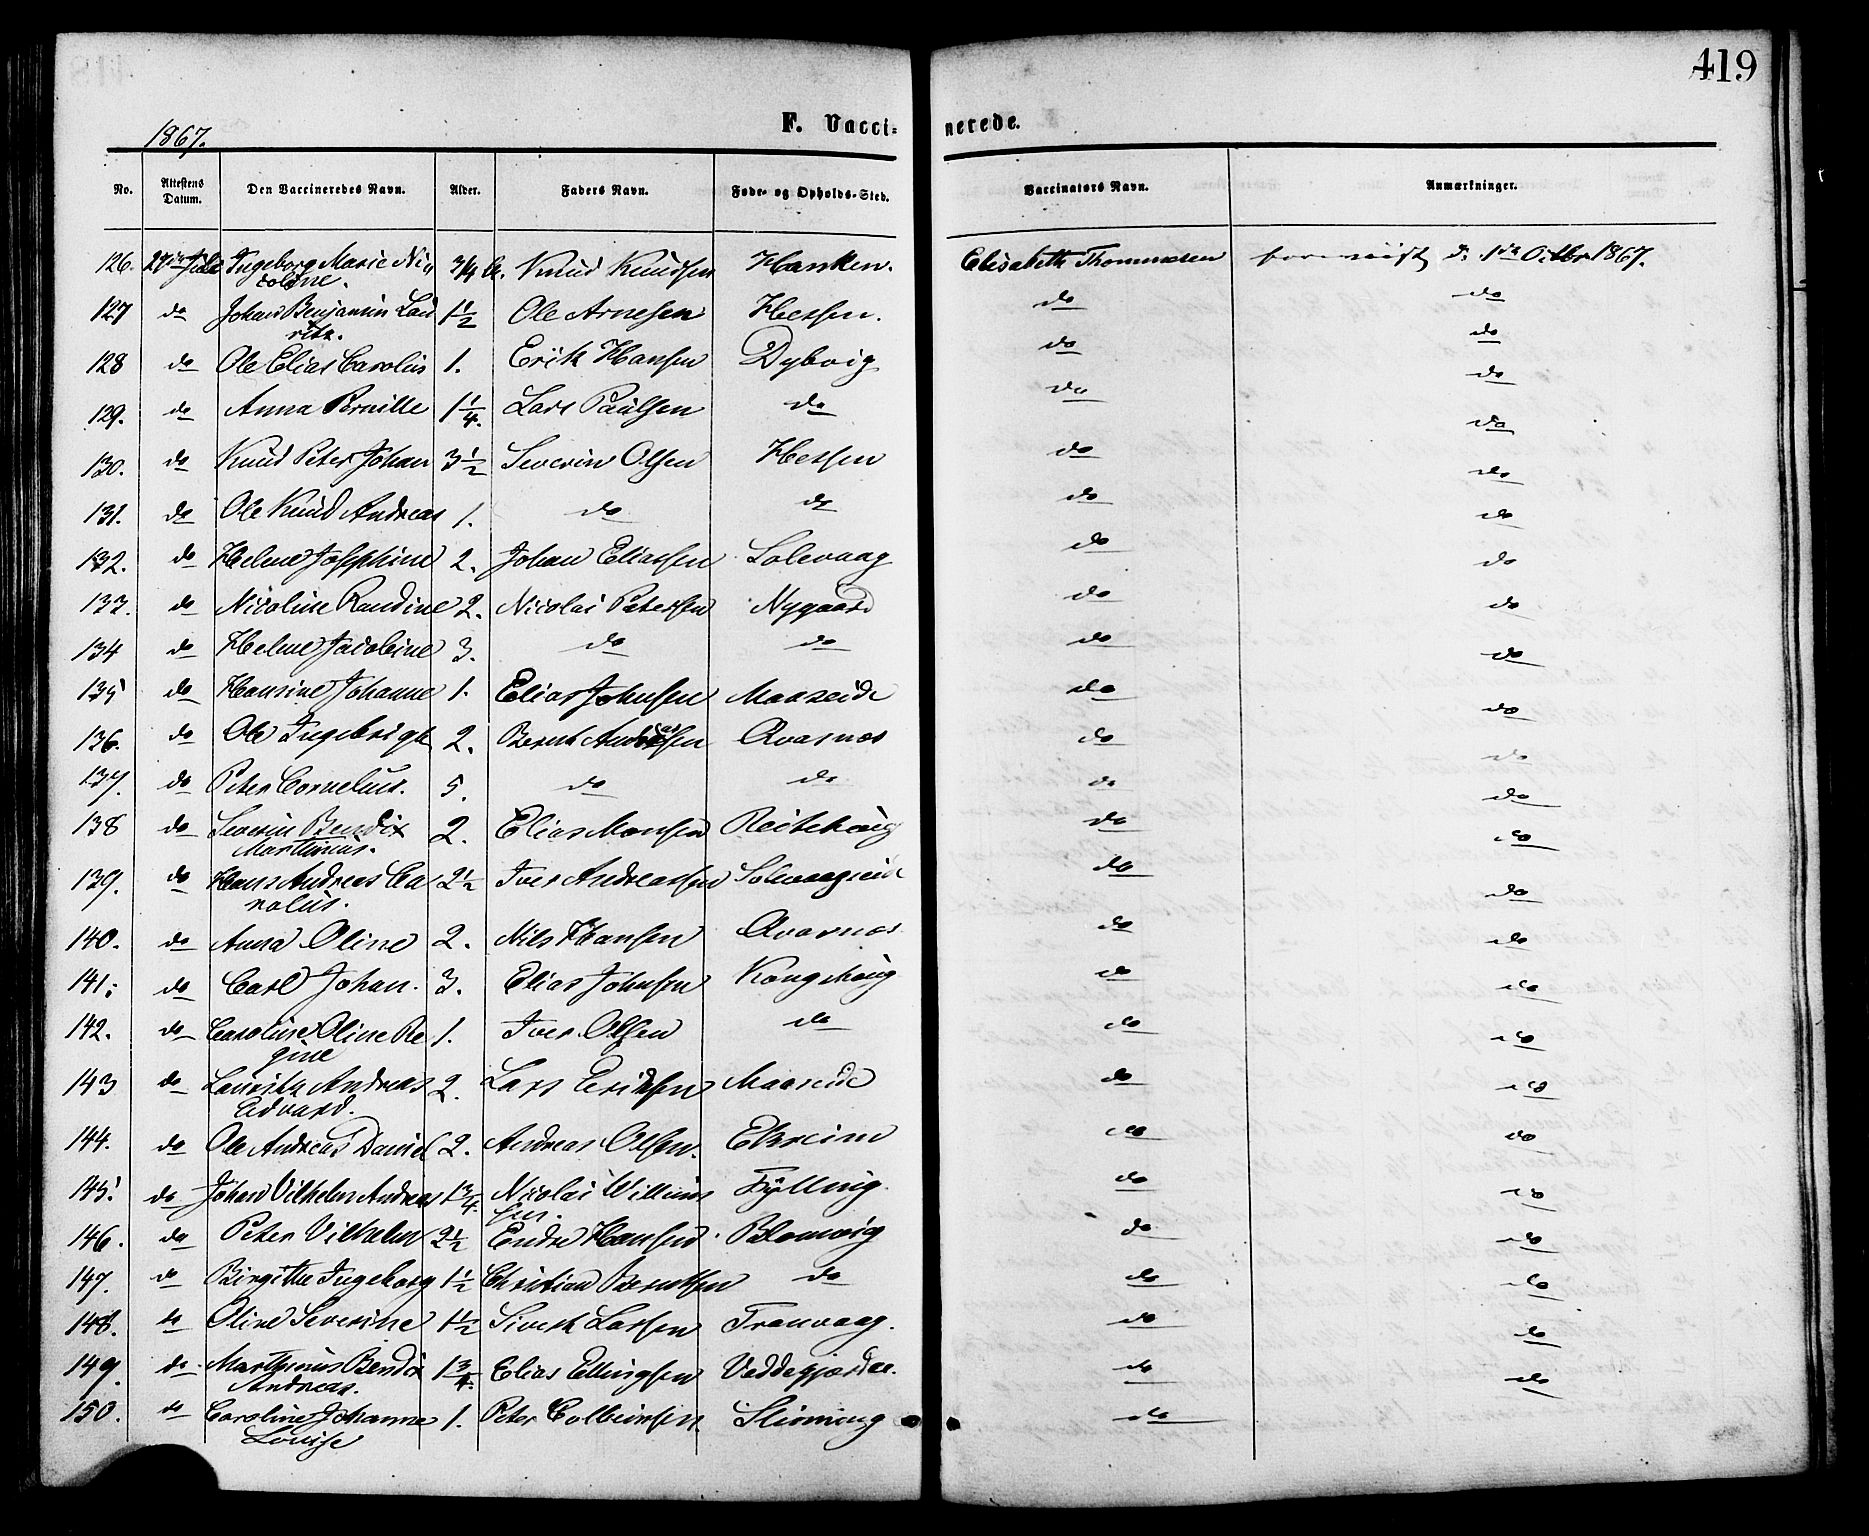 419
1867.
F. Vacci- nerede.
No. Attestens Datum. Den Vaccineredes Navn. Alder. Faders Navn. Føde- og Opholds-Sted. Vaccinators Navn. Anmærkninger.
126. Ingeborg Marie Ni- 3/4 Knud Knudsen Hanken. Elisabeth Thommesen foreviist d. 1ste Octbr 1867.
coline.
127 do Johan Benjamin Lau 1 1/2 Ole Arnesen Hessen. do do
ritz.
128 do Ole Elias Carolus 1. Erik Hansen Dybvig do do
129. do Anna Pernille 1 1/4. Lars Paulsen do do do
130. do Knud Peter Johan 3 1/2 Severin Olsen Hessen do do
131. do Ole Knud Andreas 1. do do do do
132. do Helene Josephine 2. Johan Eliassen Solevaag do do
133. do Nicoline Randine 2. Nicolai Petersen Nygaard do do
134 do Helene Jacobine 3. do do do do
135 do Hansine Johanne 1. Elias Johnsen Maaseide do do
136. do Ole Ingebrigt 2. Bernt Andreassen Qvasnes do do
137. do Peter Cornelius. 5. do do do do
138 do Severin Bendix 2. Elias Monsen Reitehoug do do
Martinius.
139. do Hans Andreas Ca 2 1/2 Iver Andreassen Solevaagseide do do
rolus.
140. do Anna Oline 2. Nils Hansen Qvasnes do do
141. do Carl Johan. 3. Elias Johnsen Kongshoug do do
142. do Caroline Oline Re 1. Iver Olsen do do do
gine
143 do Lauritz Andreas 2. Lars Eriksen Maaseide do do
Edvard.
144. do Ole Andreas Daniel 2. Andreas Olsen. Ekreim do do
145. do Johan Vilhelm Andreas 1 3/4. Nicolai Willum Fylling. do do
sen.
146. do Peter Vilhelm 2 1/2 Endre Hansen Blomvig do do
147. do Birgithe Ingeborg 1 1/2 Christian Berntsen do do do
148. do Oline Severine 1 1/2 Sivert Larsen Tranvaag. do do
149. do Marthinus Bendix 1 3/4. Elias Ellingsen Veddegjærdet. do do
Andreas.
150. do Caroline Johanne 1. Peter Colbeinsen. Slioning do
Louise